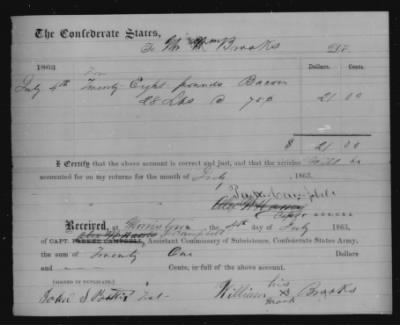 The Confederate States,
To Wm Brooks Dr.
1863 For Dollars. Cents.
July 4th Twenty Eight pounds Bacon
28 Lbs @ 75c 21 00
$ 21 00
I Certify that the above account is correct and just, and that the articles will be
accounted for on my returns for the month of July, 1863.
Received, at Morristown the 4th day of July 1863,
of CAPT. PARKER CAMPBELL, Assistant Commissary of Subsistence, Confederate States Army,
the sum of Twenty One Dollars
and Cents, in full of the above account.
[SIGNED IN DUPLICATE.] his
John S William B Brooks
mark